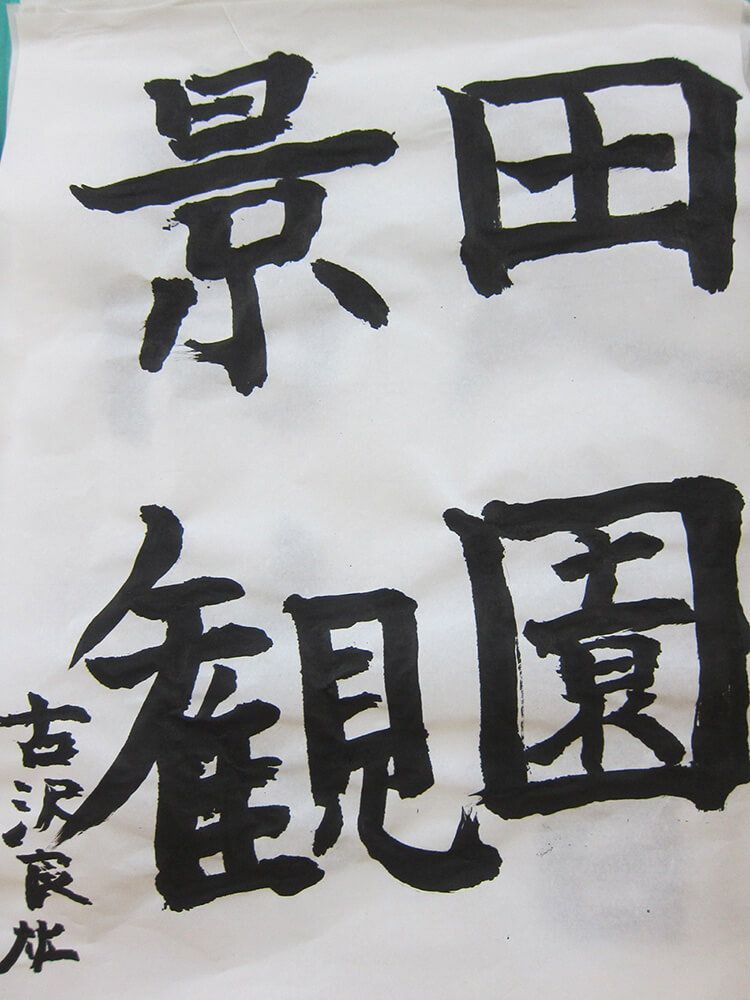 田園
景観
古沢良